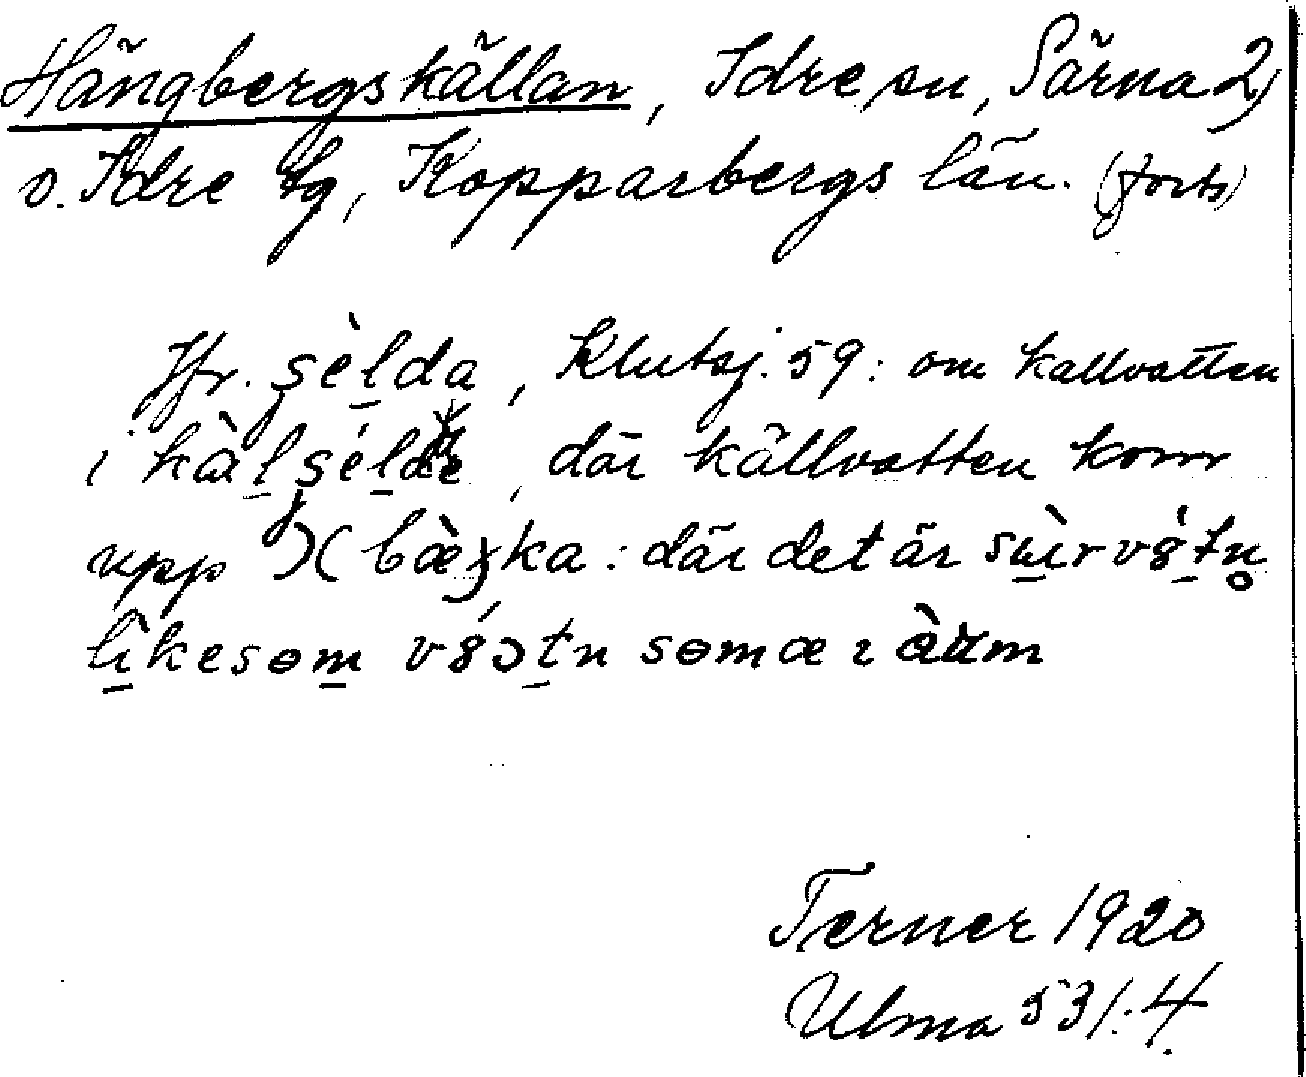 Hängbergskällan, Idre sn, Särna 2)
v. Idre tg, Kopparbergs län. (forts)
Jfr. șèlda, Klutsj. 59: om kallvatten
i kàlșélde, där källvatten kom
upp )( bæ̀ȿka: där det är sùrvȣ́tn̥
lìkesɵm vȣ́ɔtn sɵm æ ɿ àʉm
Terner 1920
Ulma 531:4.